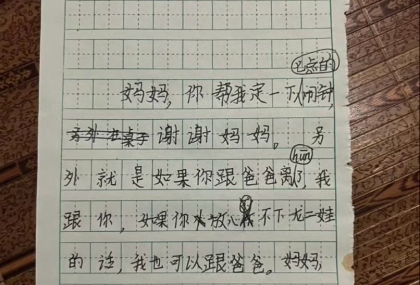 点的
妈妈,你帮我定一下闹钟,
谢谢妈妈。另
hun
外就是如果你跟爸爸离了,我
跟你,如果你放心不下娃
的话,我也可以跟爸爸。妈妈,